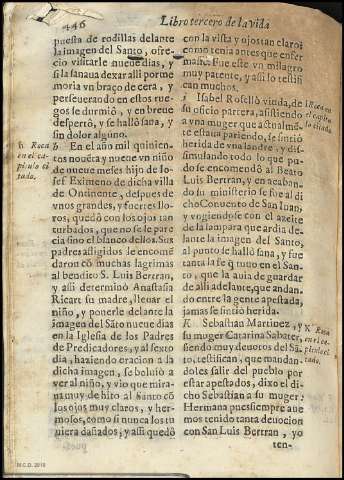 446
Libro tercero de la vida
puesta de rodillas delante
la imagen del Santo, ofre-
cio visitarle nueue dias, y
si la sanaua dexar alli por me
moria vn braço de cera, y
perseuerando en estos rue-
gos se durmiò, y en breue
despertò, y se hallò sana, y
sin dolor alguno.
h En el año mil quinien-
tos nouēta y nueue vn niño
de nueue meses hijo de Io-
sef Eximeno de dicha villa
de Ontinente, despues de
vnos grandes, y fuertes llo-
ros, quedò con los ojos tan
turbados, que no se le pare
cia sino el blanco dellos. Sus
padres afligidos le encome̅
daron cō muchas lagrimas
al bendito S. Luis Bertran,
y assi determinò Anastasia
Ricart su madre, lleuar el
niño, y ponerle delante la
imagen del Sāto nueue dias
en la Iglesia de los Padres
de Predicadores, y al sexto
dia, haziendo oracion a la
dicha imagen, se boluiò a
ver al niño, y vio que mira-
ua muy de hito al Santo cō
los ojos muy claros, y her-
mosos, como si nunca los tu
uiera dañados; y assi quedò
h Roca
en el ca-
pitulo ci
tado.
con la vista y ojos tan claros
como tenia antes que enfer
masse. Fue este vn milagro
muy patente, y assi lo testifi
can muchos.
i Isabel Rosellò viuda, de
su oficio partera, assistiendo
a vna muger que actualmē-
te estaua pariendo, se sintiò
herida de vna landre, y dis-
simulando todo lo que pu-
do se encomendò al Beato
Luis Bertran, y en acaban-
do su ministerio se fue al di
cho Conuento de San Iuan,
y vngiendose con el azeite
de la lampara que ardia de-
lante la imagen del Santo,
al punto se hallò sana, y fue
tanta la fe q̄ tuuo en el San-
to, que la auia de guardar
de alli adelante, que andan-
do entre la gente apestada,
jamas se sintiò herida.
K Sebastian Martinez, y
su muger Catarina Sabater,
siendo muy deuotos del Sā-
to, testifican, que mandan-
doles salir del pueblo por
estar apestados, dixo el di-
cho Sebastian a su muger:
Hermana pues siempre aue
mos tenido tanta deuocion
con San Luis Bertran, yo
ten-
i Roca en
el capitu
lo citado
K Roca
en el ca-
pitulo ci
tado.
M.C.D. 2018